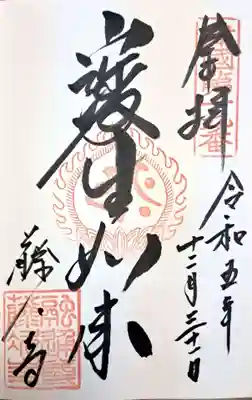 奉拝
令和五年
十二月三十一日
寶生如来
藤次寺